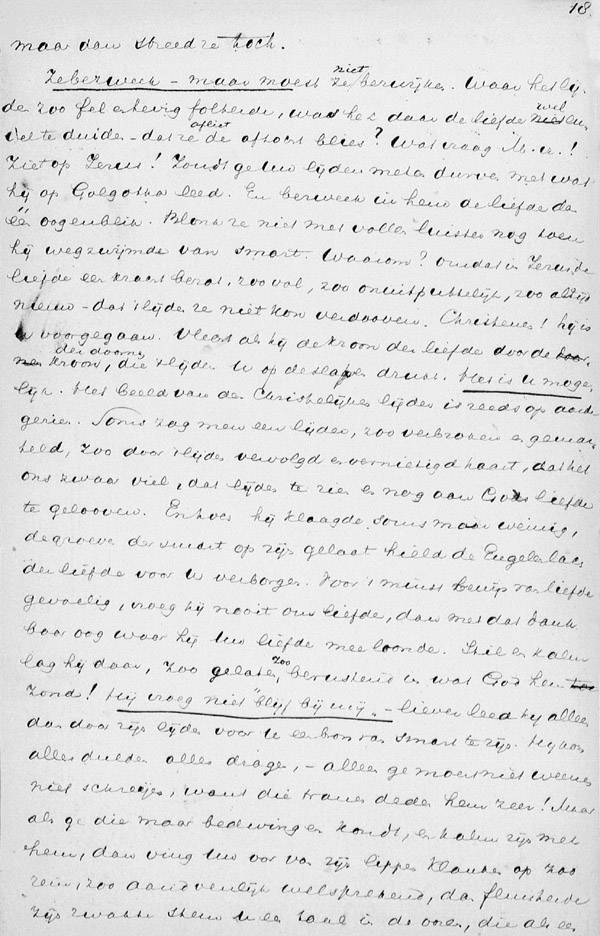 18.
maar dan streed ze toch.
Ze bezweek – maar moest ze niet bezwijken. Waar het lij-
den zoo fel en hevig folterde, was het daar de liefde niet wel
te duiden – dat ze de aftocht blies? Wat vraag M. ee.!
Ziet op Jezus! Zoudt ge uw lijden meten durven met wat
hij op Golgotha leed. En bezweek in hem de liefde da
éé oogenblik. Blonk ze niet met vollen luister nog toen
hij wegzwijmde van smart. Waarom? omdat in Jezus die
liefde een kracht bezat, zoo vol, zoo onuitputtelijk, zoo altijd
nieuw – dat 't lijden ze niet kon verdooven. Christenen! hij is
u voorgegaan. Vlecht als hij de kroon der liefde door de
der doornen kroon, die 't lijden u op de slapen drukt. Het is u moge-
lijk. Het beeld van den Christelijken lijder is reeds op aarde
gezien. Soms zag men een lijder, zoo verbroken en gemar-
teld, zoo door 't lijden vervolgd en vernietigd haast, dat het
ons zwaar viel, dat lijden te zien en nog aan Gods liefde
te gelooven. En toch hij klaagde soms maar weinig,
de groeve der smart op zijn gelaat hield de Engelenlach
der liefde voor u verborgen. Voor 't minst bewijs van liefde
gevoelig, vroeg hij nooit om liefde, dan met dat dank-
baar oog waar hij uw liefde mee loonde. Stil en kalm
lag hij daar, zoo gelaten, zoo berustend in wat God hem
zond! Hij vroeg niet "blijf bij mij" – liever leed hij alleen
dan door zijn lijden voor u een bron van smart te zijn. Hij kon
alles dulden alles dragen, – alleen ge moest niet weenen
niet schreijen, want die tranen deden hem zeer! Maar
als ge die maar bedwingen kondt, en kalm zijn met
hem, dan ving uw oor van zijn lippen klanken op zoo
rein, zoo aandoenlijk welsprekend, dan fluisterde
zijn zwakke stem u een taal in de ooren, die als een